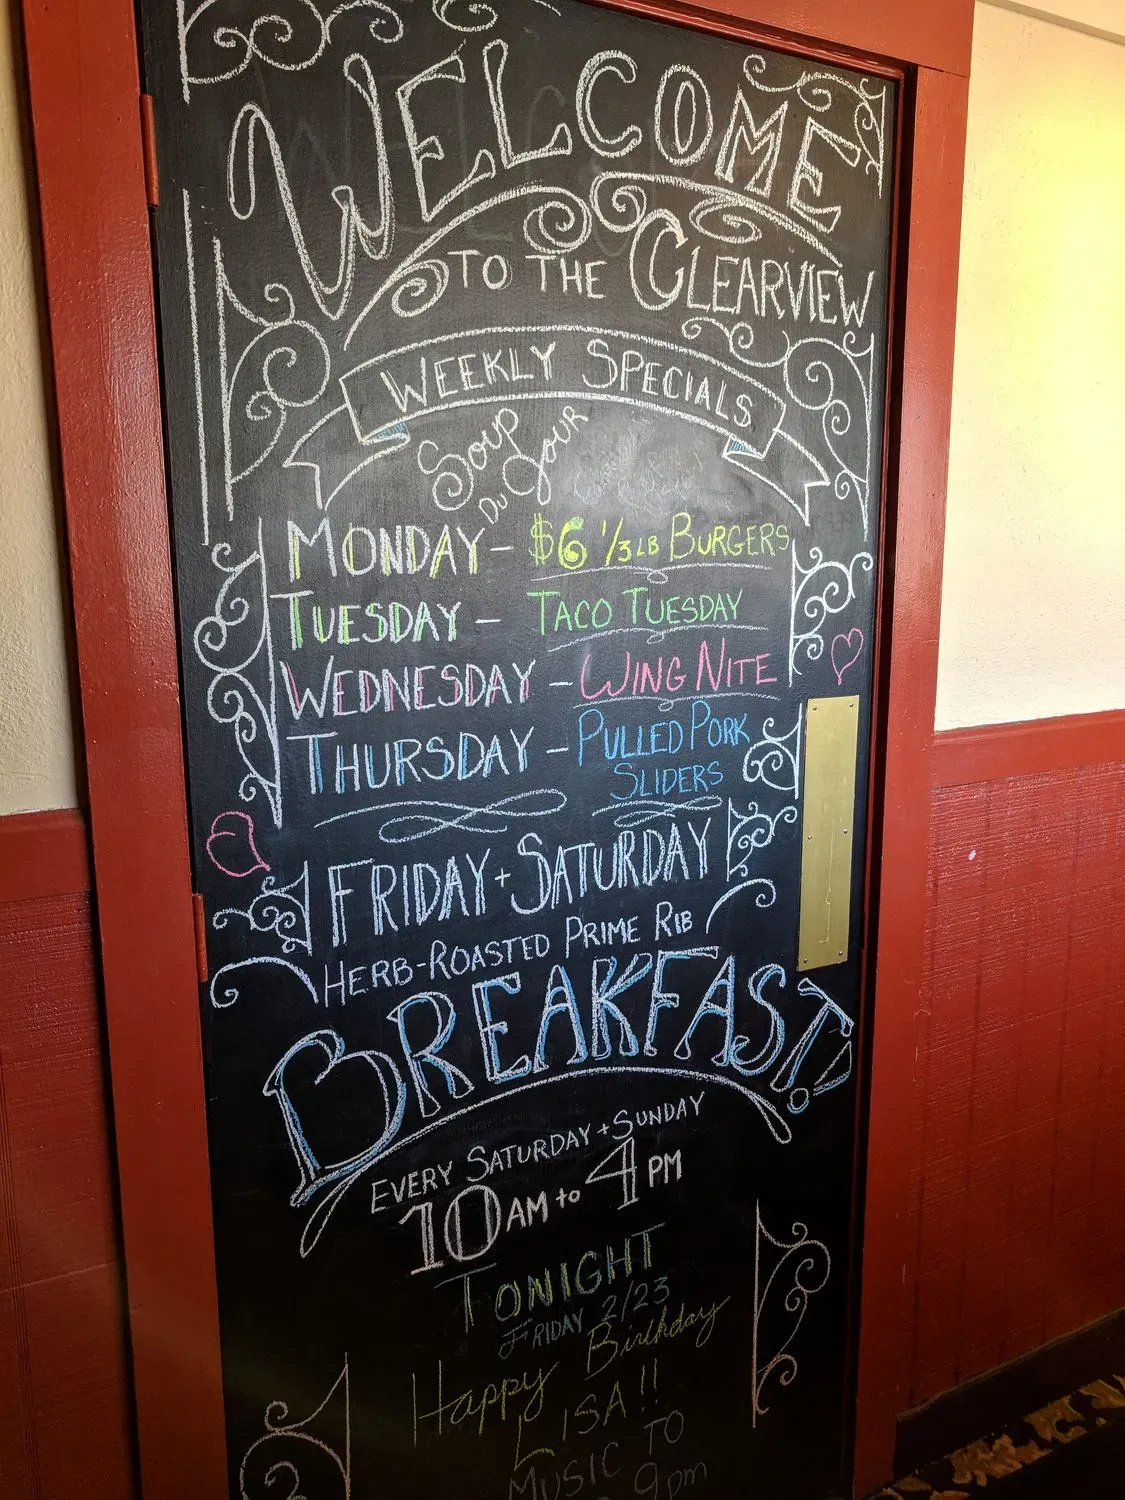 WELCOME
TO THE CLEARVIEW
WEEKLY SPECIALS
SOUP
DU JOUR
MONDAY - $6 1/3 LB BURGERS
TUESDAY - TACO TUESDAY
WEDNESDAY - WING NITE
THURSDAY - PULLED PORK
SLIDERS
FRIDAY + SATURDAY
HERB-ROASTED PRIME RIB
BREAKFAST!
EVERY SATURDAY + SUNDAY
10 AM to 4 PM
TONIGHT
FRIDAY 2/23
Happy Birthday
LISA!!
MUSIC TO
9pm